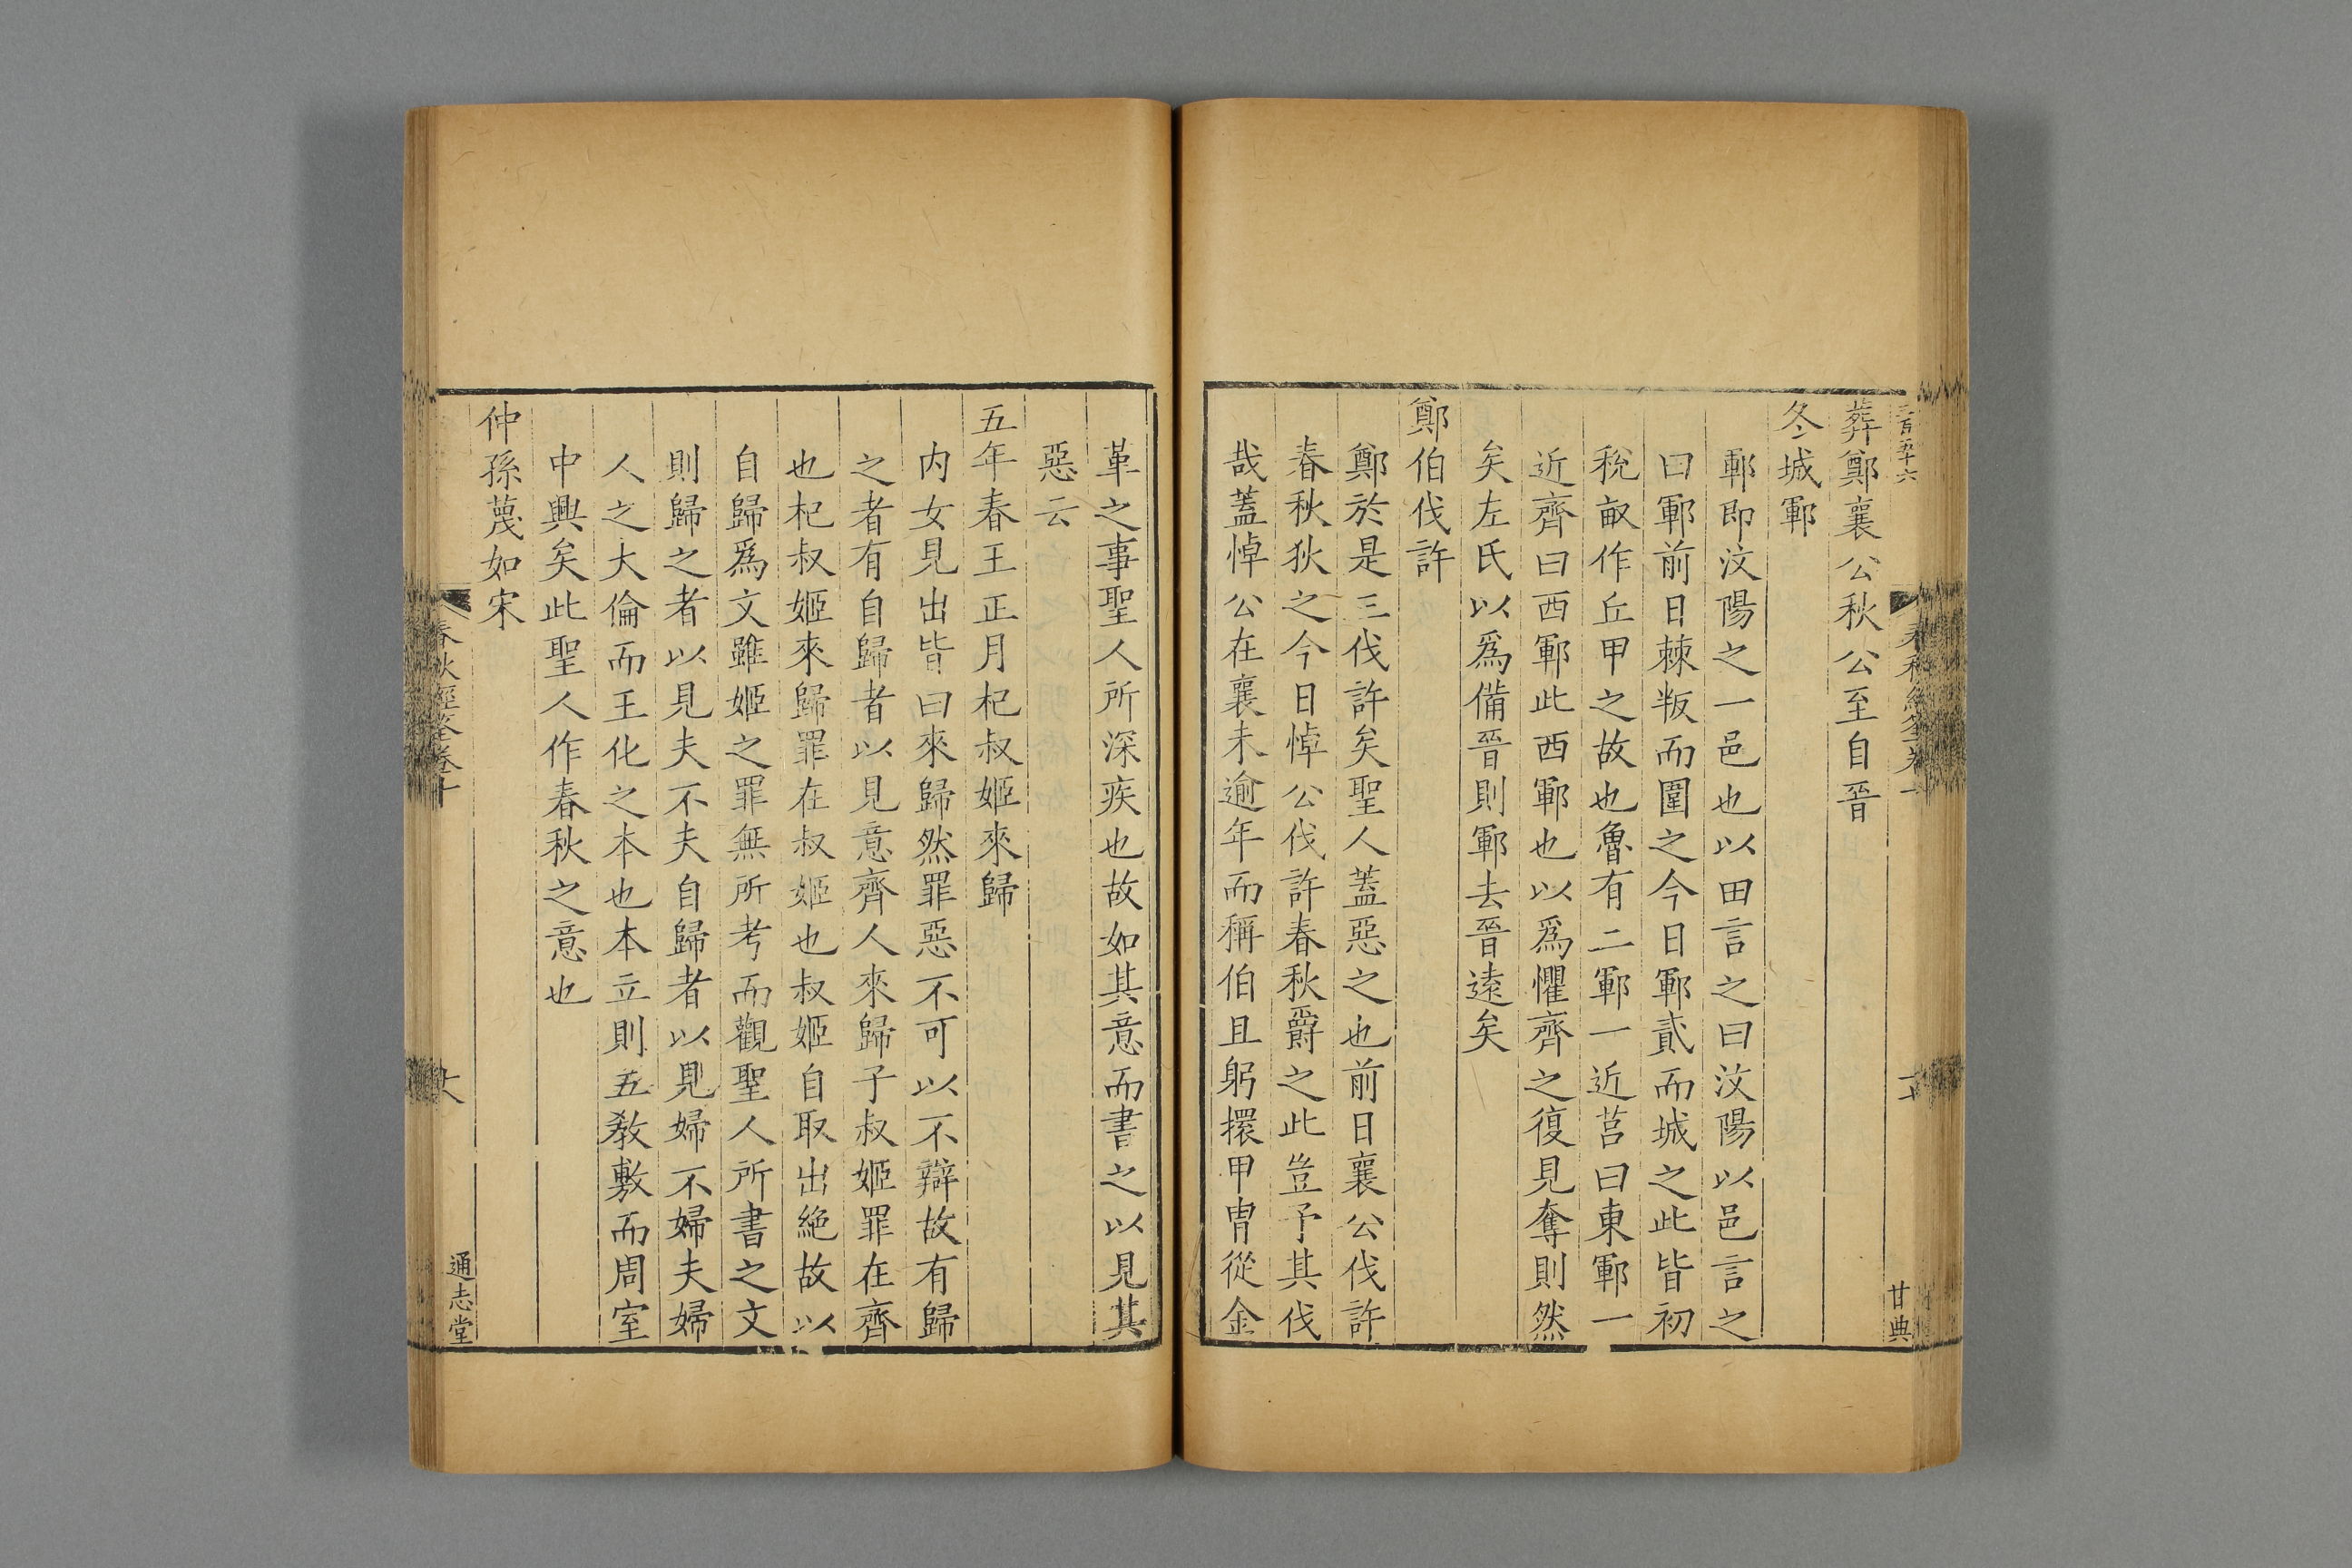 葬鄭襄公秋公至自晉
冬城鄆
鄆即汶陽之一邑也以田言之曰汶陽以邑言之
曰鄆前日棘叛而圍之今日鄆貳而城之此皆初
稅畝作丘甲之故也魯有二鄆一近莒曰東鄆一
近齊曰西鄆此西鄆也以爲懼齊之復見奪則然
矣左氏以爲備晉則鄆去晉遠矣
鄭伯伐許
鄭於是三伐許矣聖人蓋惡之也前日襄公伐許
春秋狄之今日悼公伐許春秋爵之此豈予其伐
哉蓋悼公在襄未逾年而稱伯且躬擐甲胄從金
甘典
革之事聖人所深疾也故如其意而書之以見其
惡云
五年春王正月杞叔姬來歸
内女見出皆曰來歸然罪惡不可以不辯故有歸
之者有自歸者以見意齊人來歸子叔姬罪在齊
也杞叔姬來歸罪在叔姬也叔姬自取出絶故以
自歸爲文雖姬之罪無所考而觀聖人所書之文
則歸之者以見夫不夫自歸者以見婦不婦夫婦
人之大倫而王化之本也本立則五教敷而周室
中興矣此聖人作春秋之意也
仲孫蔑如宋
春秋經筌卷十
通志堂